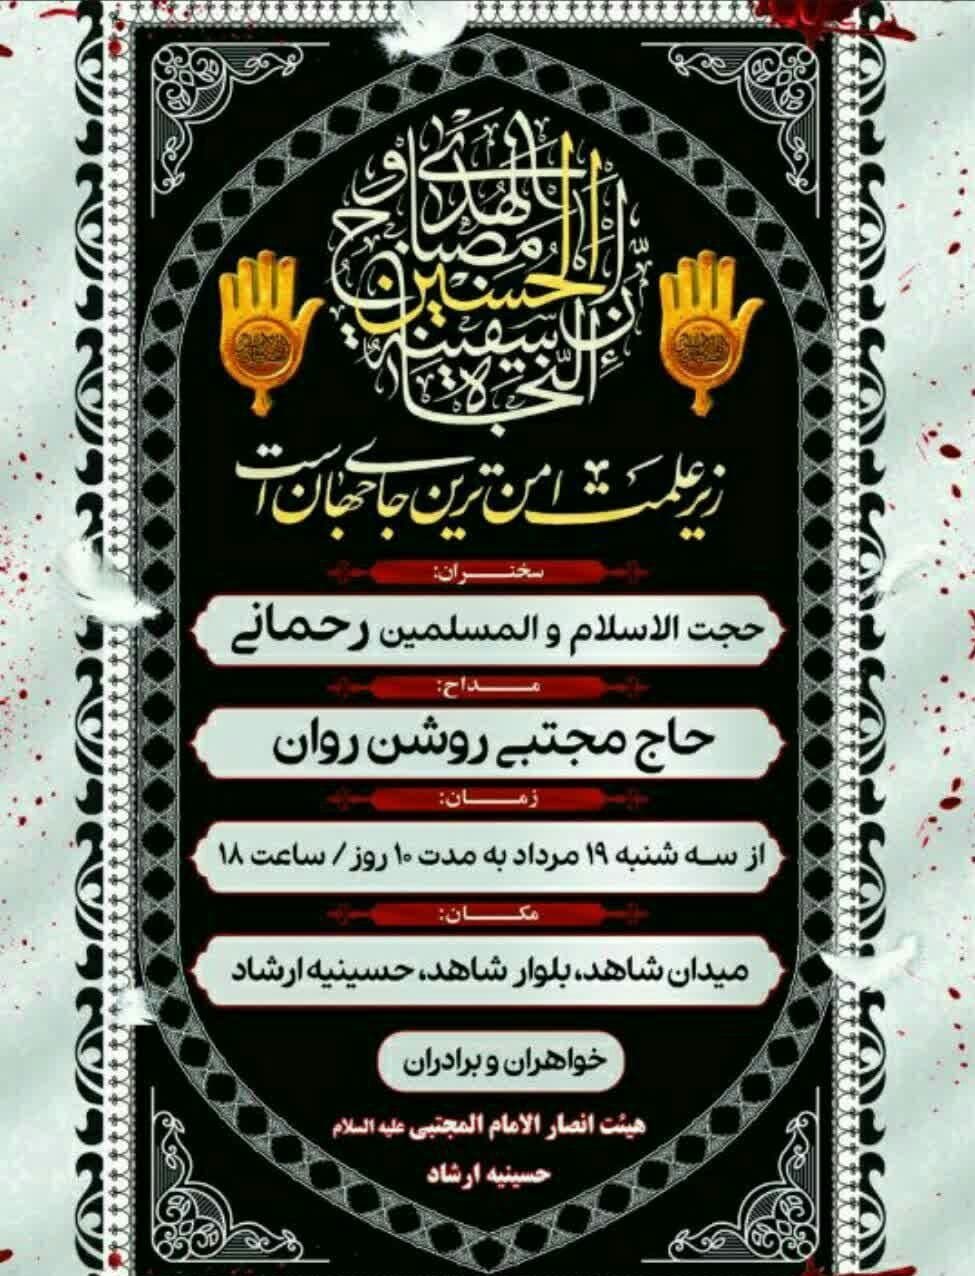 إن الحسین مصباح الهدی و سفینة النجاة
زیر علمت امن ترین جای جهان است
سخنران:
حجت الاسلام و المسلمین رحمانی
مداح:
حاج مجتبی روشن روان
زمان:
از سه شنبه ۱۹ مرداد به مدت ۱۰ روز / ساعت ۱۸
مکان:
میدان شاهد، بلوار شاهد، حسینیه ارشاد
خواهران و برادران
هیئت انصار الامام المجتبی علیه السلام
حسینیه ارشاد